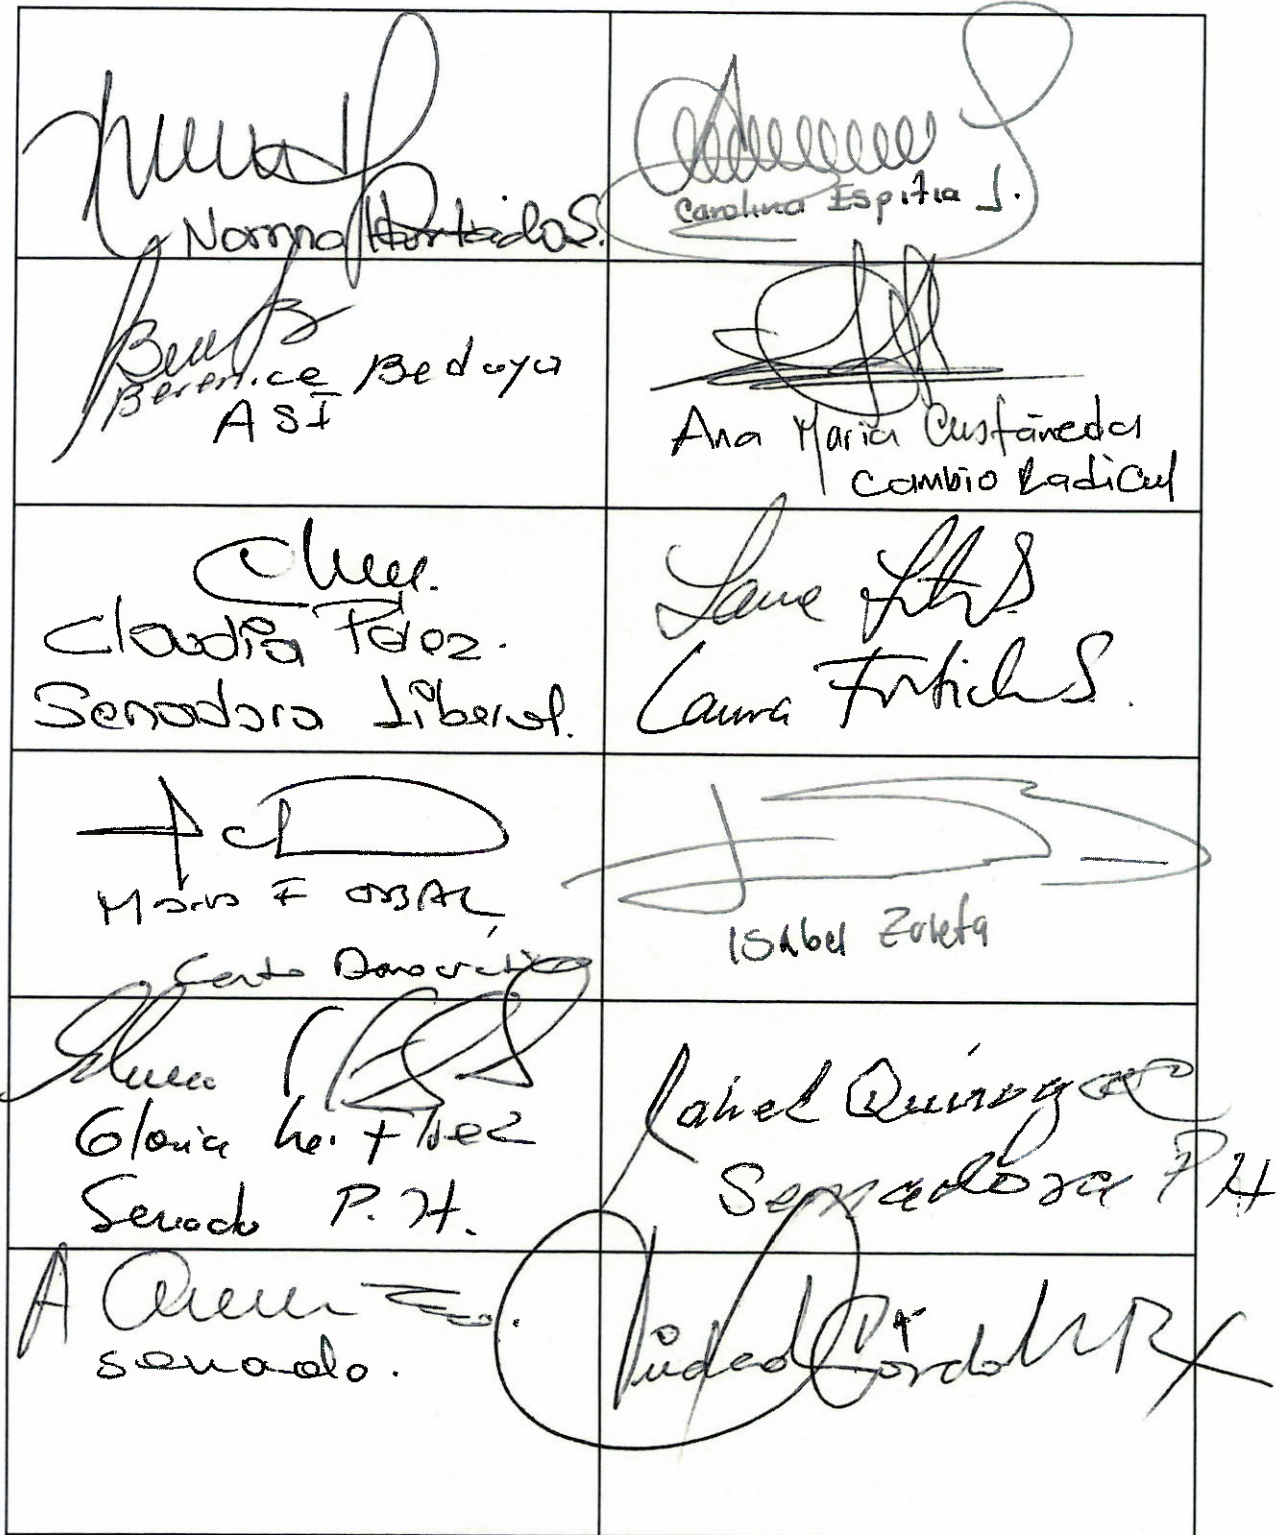 Norma Hurtado S.
Carolina Espitia J.
Berenice Bedoya
ASI
Ana Maria Castañeda
Cambio Radical
Claudia Pérez.
Senadora Liberal.
Laura Fortich S.
Laura Fortich S.
Isabel Zuleta
Gloria
Senado P.H.
Jahel Quiroga
Senadora PH
A
senado.
Piedad Córdoba